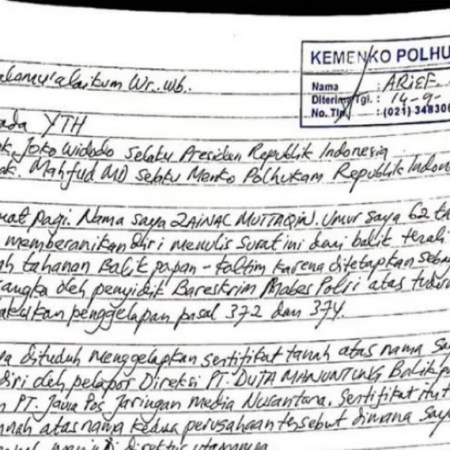 KEMENKO POLHU
Nama : ARIEF.
Diterima Tgl. : 14-9-
No. Tlp. : (021) 34830
alamu'alaikum Wr. wb.
ada YTH
ak. Joko Widodo Selaku Presiden Republik Indonesia
ak. Mahfud MD selaku Menko Polhukam Republik Indon
mat pagi. Nama saya ZAINAL MUTTAQIN. Umur saya 62 ta
memberanikan diri menulis surat ini dari balik terali
ah tahanan Balikpapan - Kaltim karena ditetapkan seba
rangka oleh penyidik Bareskrim Mabes Polri atas tudu
lakukan penggelapan pasal 372 dan 374.
ya dituduh menggelapkan sertifikat tanah atas nama sa
diri oleh pelapor Direksi PT. DUTA MANUNTUNG Balikp
n PT. Jawa Pos Jaringan Media Nusantara. Sertifikat itu t
rnah atas nama kedua perusahaan tersebut dimana saya
menjadi direktur utamanya